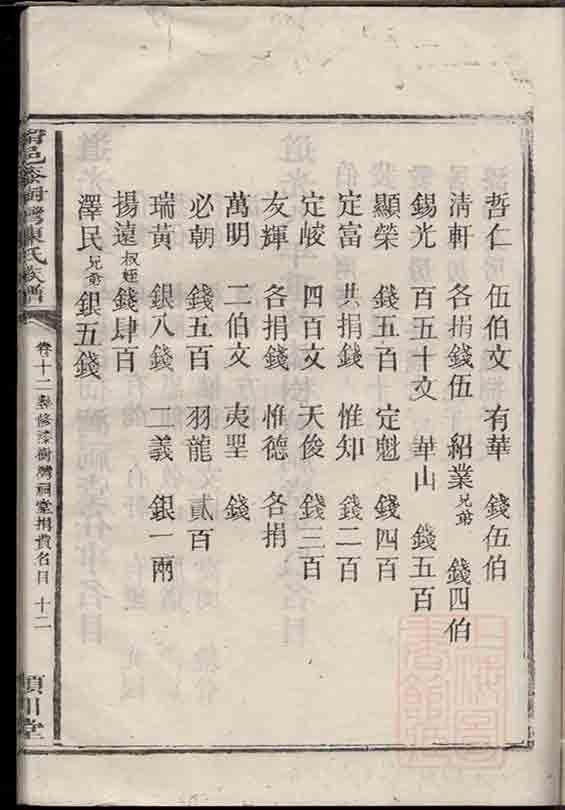 哲仁 伍伯文 有華 錢伍伯
清軒 各捐錢伍 紹業兄弟 錢四伯
錫光 百五十文 華山 錢五百
顯榮 錢五百 定魁 錢四百
定富 共捐錢 惟知 錢二百
定峻 四百文 天俊 錢三百
友輝 各捐錢 惟德 各捐
萬明 二伯文 夷聖 錢
必朝 錢五百 羽龍 貳百
瑞黃 銀八錢 二義 銀一兩
揚遠叔姪 錢肆百
澤民兄弟 銀五錢
甯邑漆樹灣陳氏族譜
卷十二 修漆樹灣祠堂捐費名目 十二
潁川堂
上海圖書館藏